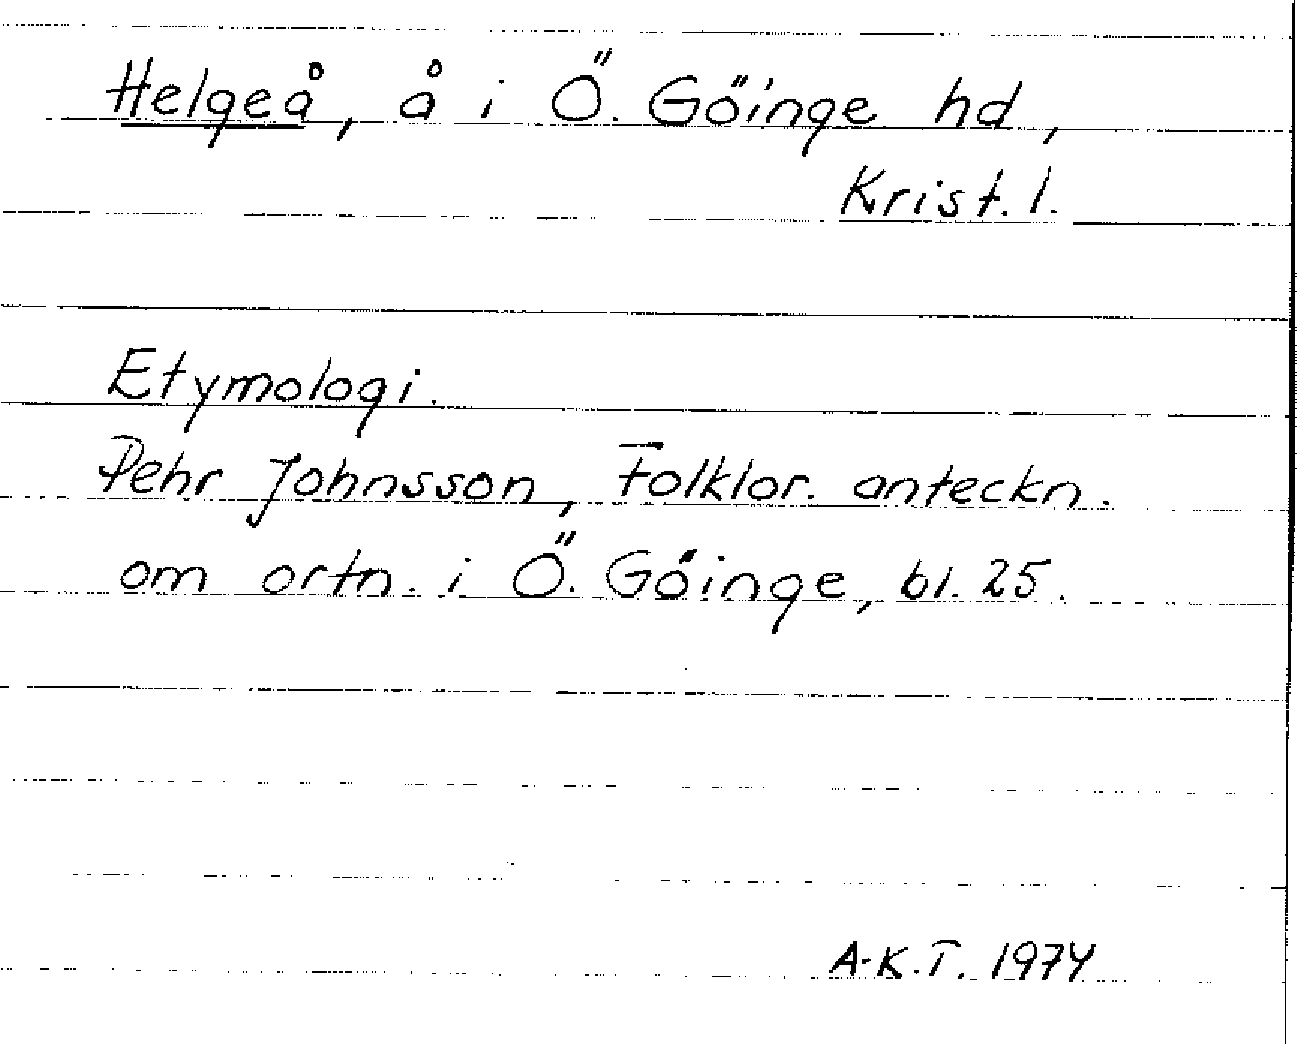 Helgeå, å i Ö. Göinge hd,
Krist. l.
Etymologi.
Pehr Johnsson, Folklor. anteckn.
om ortn. i Ö. Göinge, bl. 25.
A-K.T. 1974